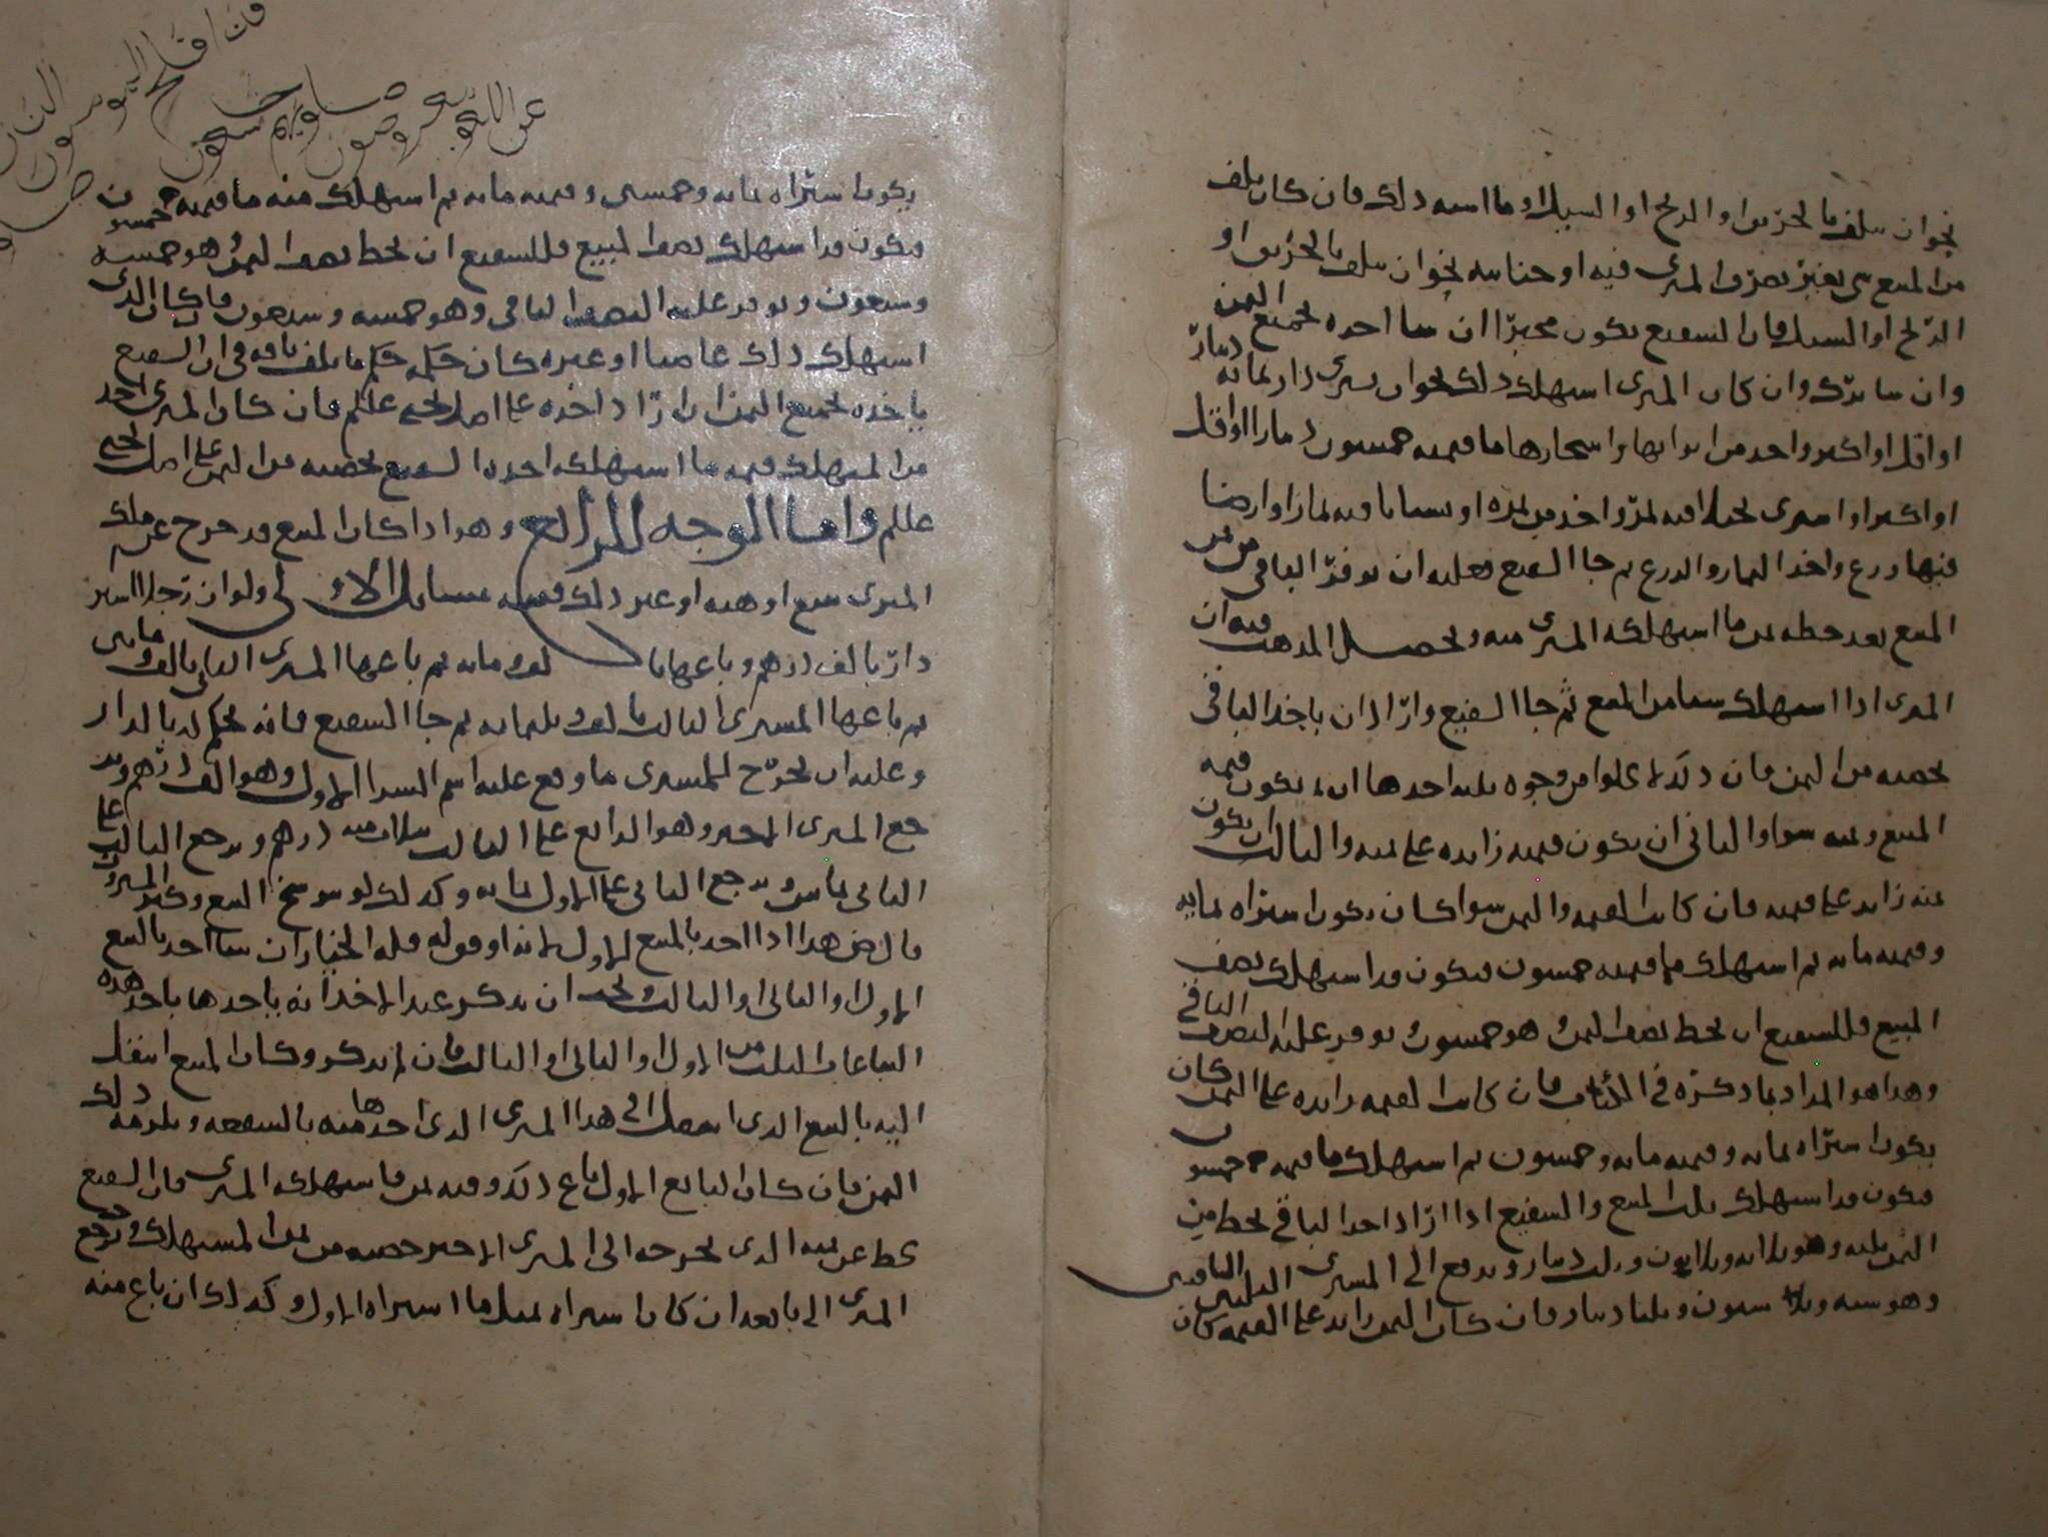 نحو ان يتلف بالحريق او الريح او السيل او ما اشبه ذلك فان كان تلف
من المبيع شي بغير تصرف المشتري فيه او جنايته نحو ان يتلف بالحريق او
الريح او السيل فان الشفيع يكون مخيرا ان شا اخذه بجميع الثمن
وان شا ترك وان كان المشتري استهلك ذلك نحو ان يشتري دار بمائة دينار
او اقل او اكثر واخذ من ابوابها واشجارها ما قيمته خمسون دينارا او اقل
او اكثر او اشترى نخلا فيه ثمر واخذ من ثمره او بستانا فيه ثمارا او ارضا
فيها زرع واخذ الثمار والزرع ثم جا الشفيع فعليه ان يوفر الباقي من ثمن
المبيع بعد حطه ثمن ما استهلكه المشتري منه وتحصيل المذهب فيه ان
المشتري اذا استهلك شيا من المبيع ثم جا الشفيع واراد ان ياخذ الباقي
بحصته من الثمن فان ذلك لا يخلوا من وجوه ثلثه احدها ان يكون قيمة
المبيع وثمنه سوا والثاني ان يكون قيمته زايده على ثمنه والثالث ان يكون
ثمنه زايد على قيمته فان كانت القيمه والثمن سوا كان يكون اشتراه بمايه
وقيمته مائه ثم استهلك ما قيمته خمسون فيكون قد استهلك نصف
المبيع فللشفيع ان يحط نصف الثمن وهو خمسون ويوفر عليه النصف الباقي
وهذا هو المراد بما ذكره في الكتاب فان كانت القيمه زايده على الثمن كان
يكون اشتراه بمائه وقيمته مائه وخمسون ثم استهلك ما قيمته خمسون
فيكون قد استهلك ثلث المبيع والشفيع اذا اراد اخذ الباقي يحط من
الثمن ثلثه وهو ثلاثه وثلاثون وثلث دينار ويدفع الى المشتري الثلثين الباقيين
وهو سته وستون وثلثا دينار فان كان الثمن زايد على القيمه كان
يكون اشتراه بمائه وخمسين وقيمته مائه ثم استهلك منه ما قيمته خمسون
فيكون قد استهلك نصف المبيع فللشفيع ان يحط نصف الثمن وهو خمسه
وسبعون ويوفر عليه النصف الباقي وهو خمسه وسبعون فان كان الذي
استهلك ذلك غاصبا او غيره كان حكمه حكم ما يتلف بافه في ان الشفيع
ياخذه بجميع الثمن ان اراد اخذه على اصل يحيى عللم فان كان المشتري اخذ
من المستهلك قيمة ما استهلكه اخذه الشفيع بحصته من الثمن على اصل يحيى
عللم واما الوجه الرابع وهو اذا كان المبيع قد خرج عن ملك
المشتري ببيع او هبه او غير ذلك ففيه مسايل الاولى ولو ان رجلا اشترى
دار بالف درهم وباعها بالف ومائه ثم باعها المشتري الثاني بالف ومائتين
ثم باعها المشتري الثالث بالف وثلثمائه ثم جا الشفيع فانه يحكم له بالدار
وعليه ان يخرج للمشتري ما وقع عليه اسم الشرا الاول وهو الف درهم وير
جع المشتري الاخير وهو الرابع على الثالث بثلاث مائه درهم ويرجع الثالث على
الثاني بمائتين ويرجع الثاني على الاول بمائه وكذلك لو تنوسخ البيع وكثر المشترون
قال رض هذا اذا اخذ بالبيع الاول لانه او قوله فله الخيار ان شا اخذ بالبيع
الاول او الثاني او الثالث ويجب ان يذكر عند الاخذ انه ياخذها باحد هذه
البياعات الثلث من الاول او الثاني او الثالث فان لم يذكر وكان المبيع انتقل
اليه بالبيع الذي انتقل الى هذا المشتري الذي اخذها منه بالشفعه ويلزمه ذلك
الثمن فان كان البائع الاول باع ذلك وفيه ثمن ما استهلكه المشتري فان الشفيع
يحط عن ثمنه الذي يخرجه الى المشتري الاخير حصته من ثمن المستهلك ويرجع
المشتري الى بائعه ان كان اشتراه بمثل ما اشتراه الاول وكذلك ان باع منه